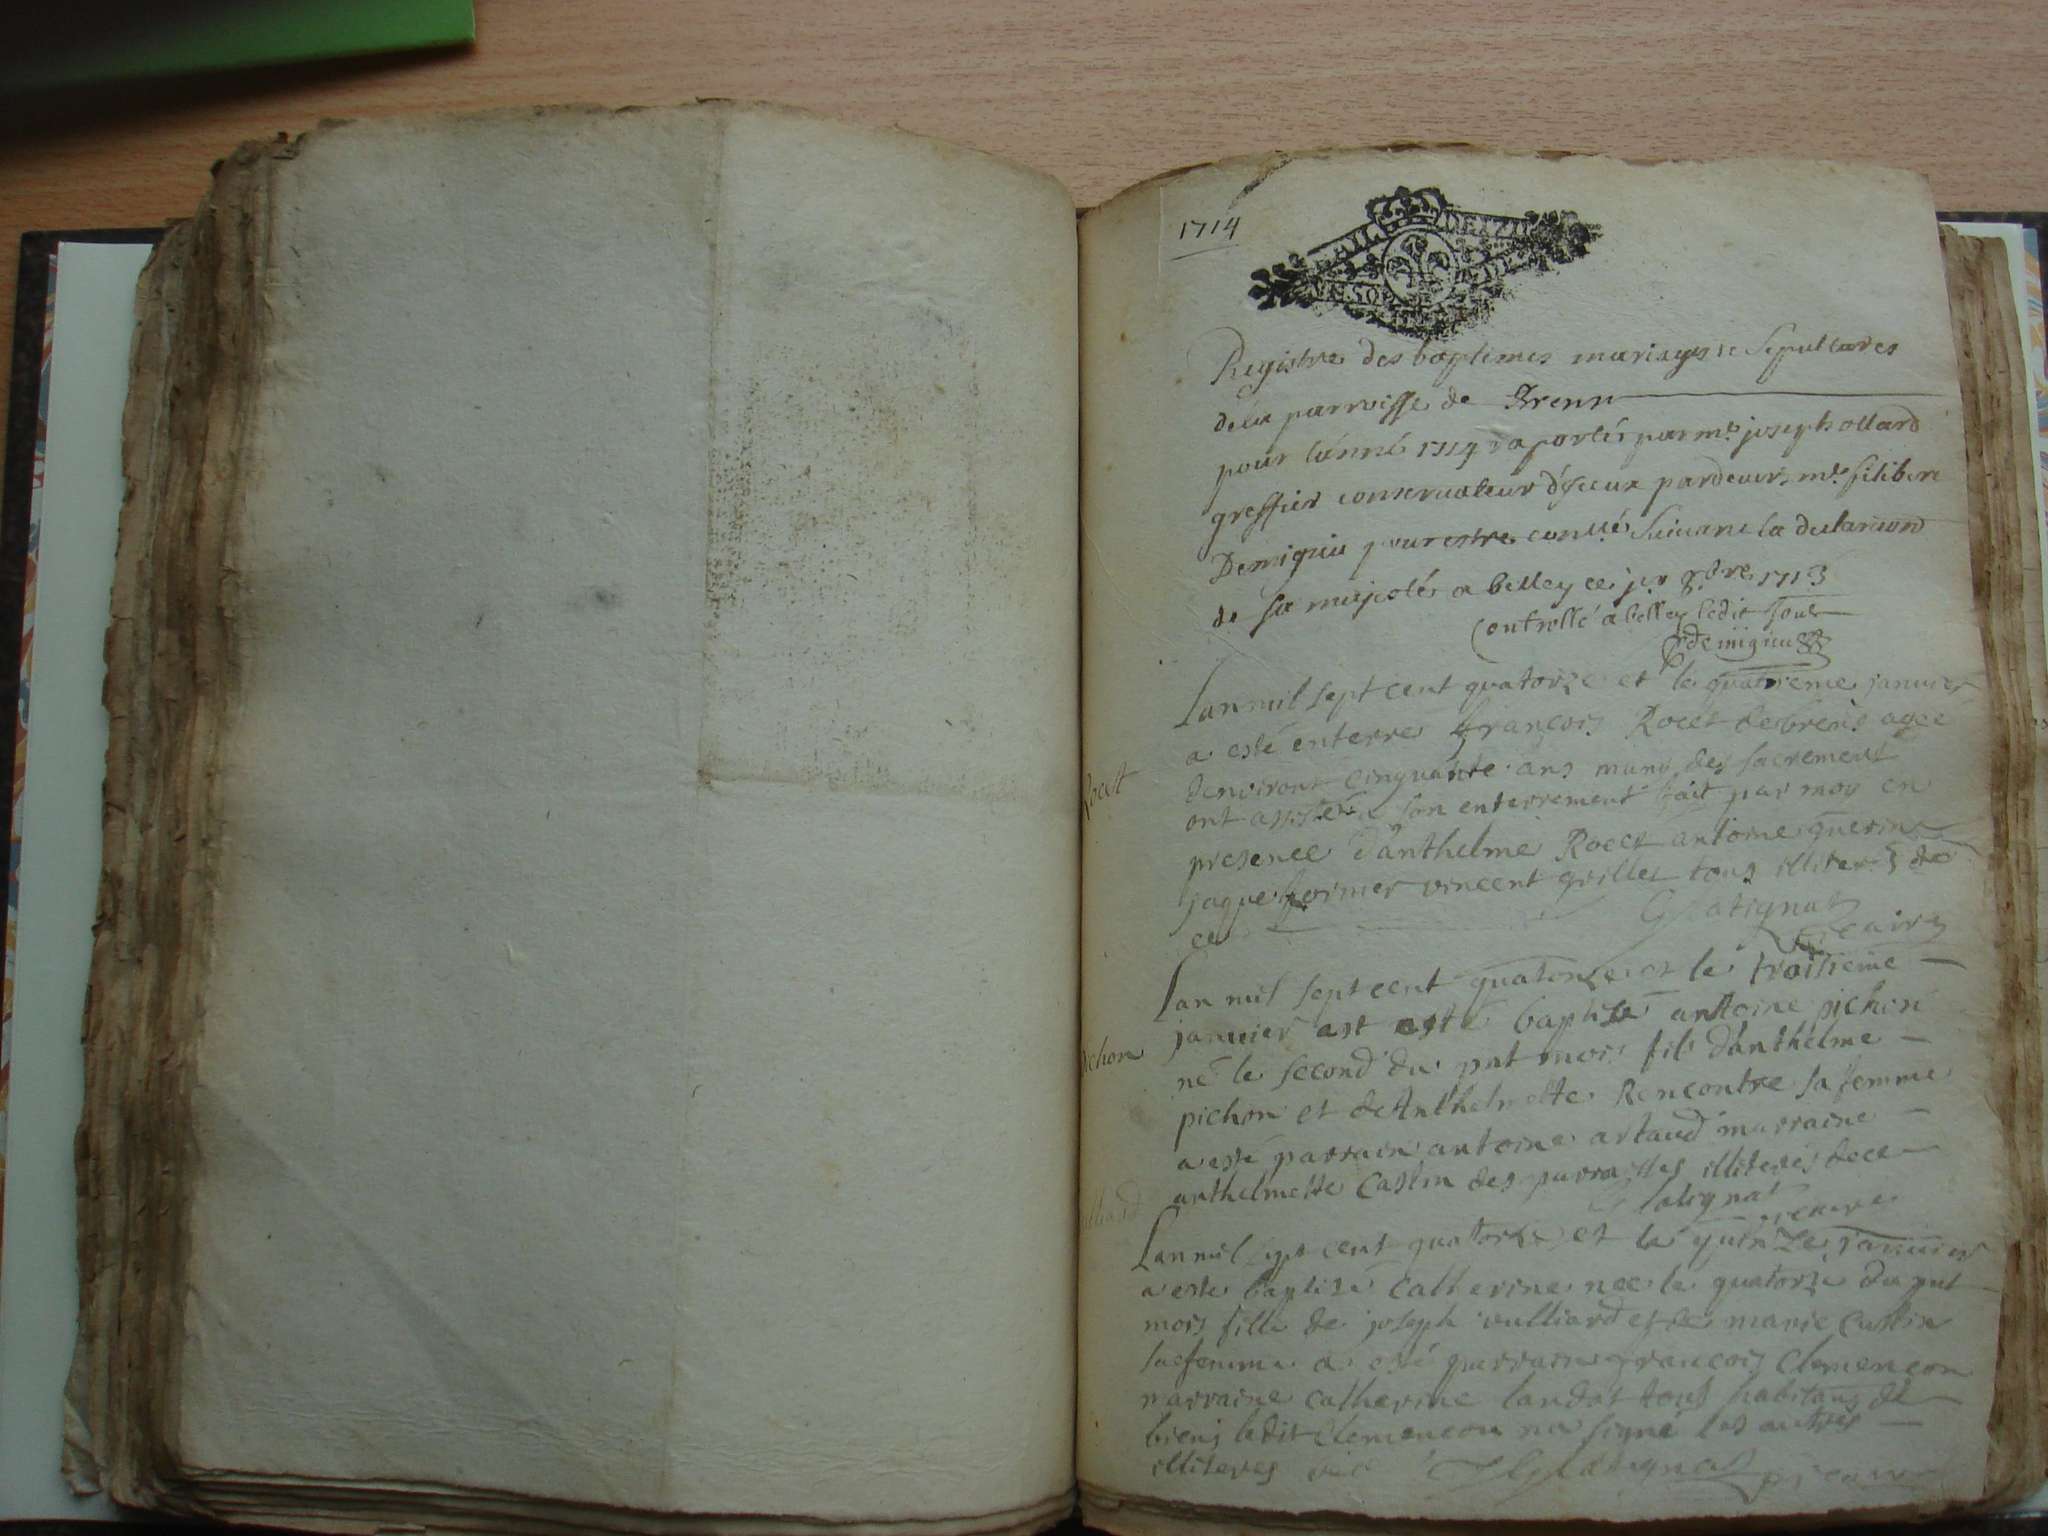 1714
Registre des baptemes mariages et Sepultures
de la parroisse de Brenn
pour l'année 1714 aportés par me joseph ollard
greffier conservateur d'iceux pardevers me filibert
Demigieu pour estre conllé Suivant la declaration
de Sa majesté a belley ce jer 9bre 1713
Controllé a belley ledit Jour
Demigieu
Roect
Lan mil sept cent quatorze et le quatrieme janvier
a esté enterré françois Roect de brens agee
denviront cinquante ans muni des sacrement
ont assisté a son enterrement fait par moy en
presence d'anthelme Roect antoine guerin
jaque fornier vincent grillet tous illiteres de
ce
Gratignat
vicaire
pichon
Lan mil sept cent quatorze et le troisieme
janvier ast esté baptisé antoine pichon
né le second du pnt mois fils danthelme
pichon et de Anthelmette Rencontre sa femme
a esté parrain antoine artaud marraine
anthelmette Castin des parroisses illiterés de ce
Gratignat vicaire
vulliard
Lan mil sept cent quatorze et le quinze janvier
a esté baptisé Catherine nee le quatorze du pnt
mois fille de joseph vulliard et de marie Castin
sa femme a esté parrain françois Clemencon
marraine catherine landot tous habitans de
biens ledit Clemencon na signé les autres
illiteres
Gratignat vicaire